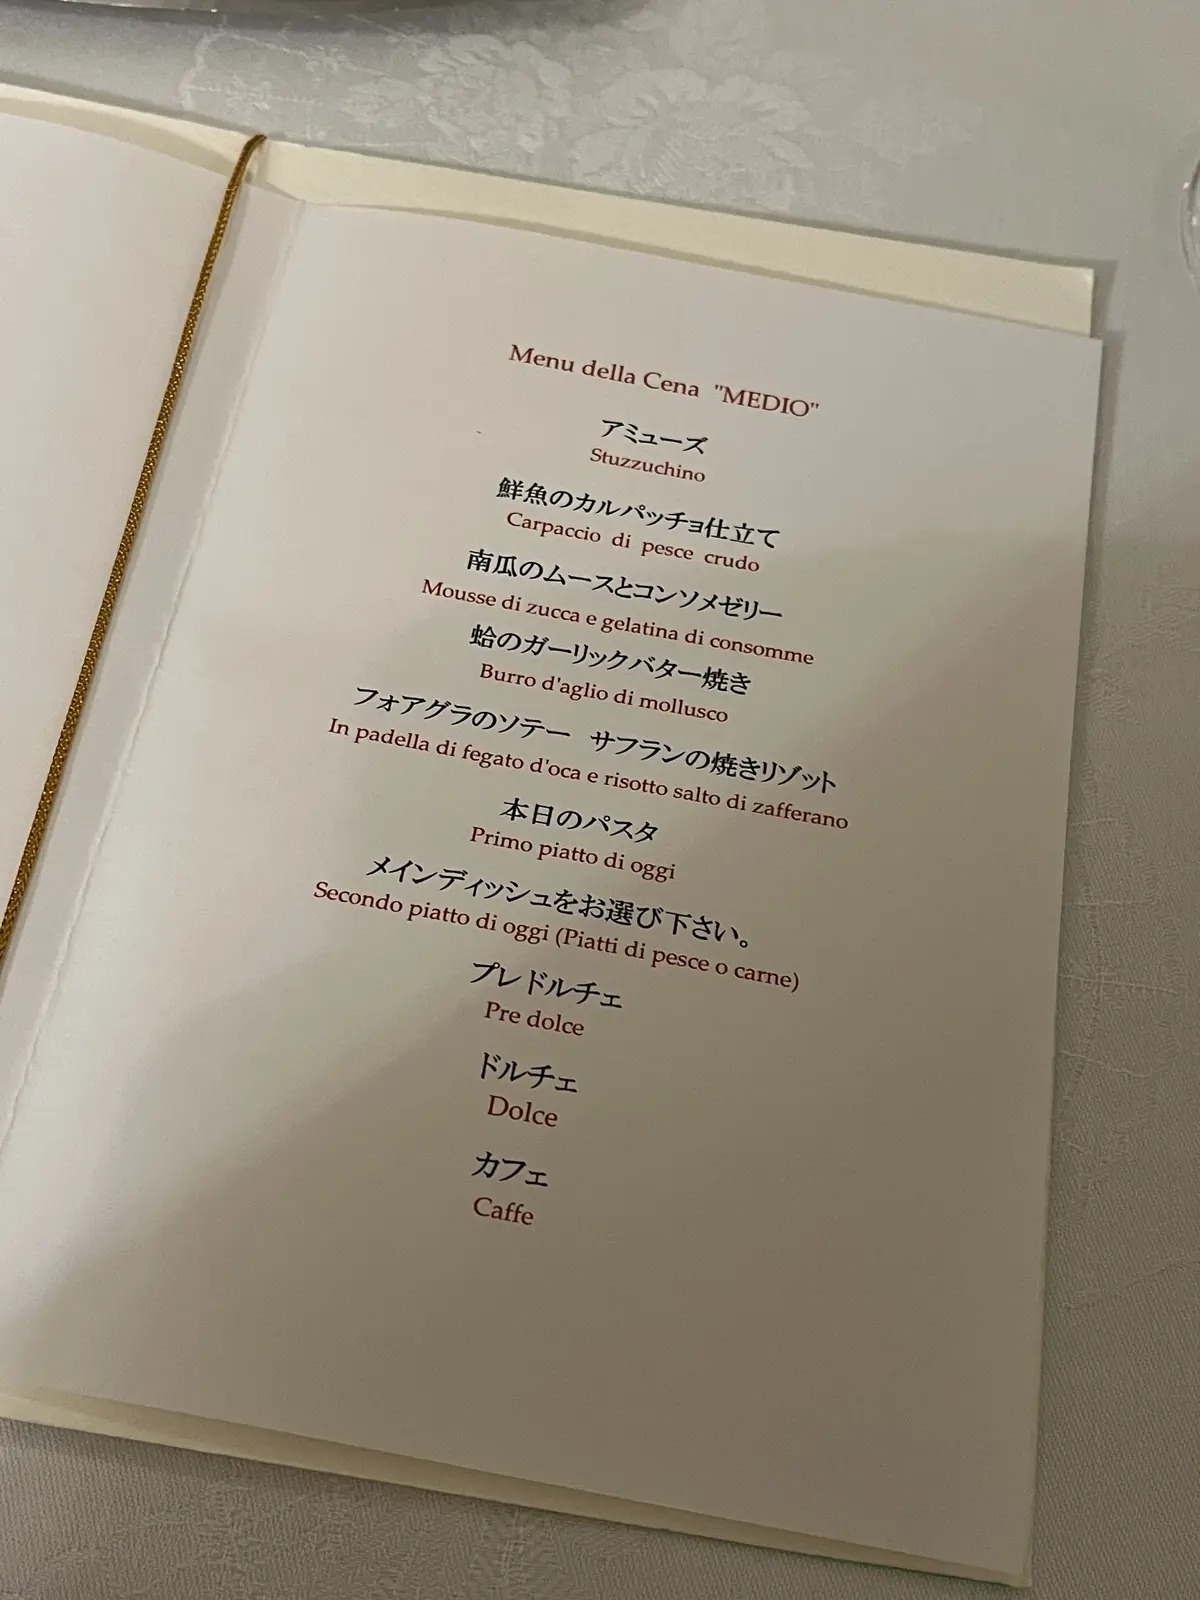 Menu della Cena "MEDIO"
アミューズ
Stuzzuchino
鮮魚のカルパッチョ仕立て
Carpaccio di pesce crudo
南瓜のムースとコンソメゼリー
Mousse di zucca e gelatina di consomme
蛤のガーリックバター焼き
Burro d'aglio di mollusco
フォアグラのソテー サフランの焼きリゾット
In padella di fegato d'oca e risotto salto di zafferano
本日のパスタ
Primo piatto di oggi
メインディッシュをお選び下さい。
Secondo piatto di oggi (Piatti di pesce o carne)
プレドルチェ
Pre dolce
ドルチェ
Dolce
カフェ
Caffe